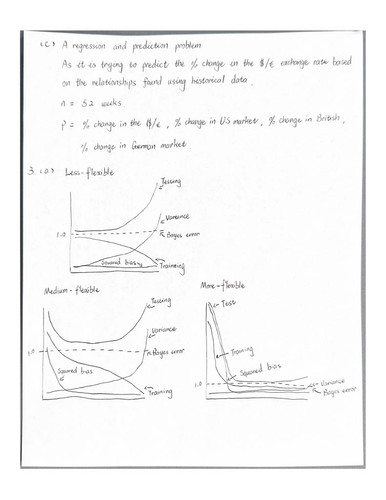 (c) A regression and prediction problem
As it is trying to predict the % change in the $/€ exchange rate based
on the relationships found using historical data.
n = 52 weeks.
p = % change in the $/€, % change in US market, % change in British,
% change in German market.
3. (a) Less-flexible
Testing
Variance
Bayes error
1.0
Squared bias
Training
Medium-flexible
Testing
Variance
1.0
Bayes error
Squared bias
Training
More-flexible
Test
Training
Squared bias
1.0
Variance
Bayes error